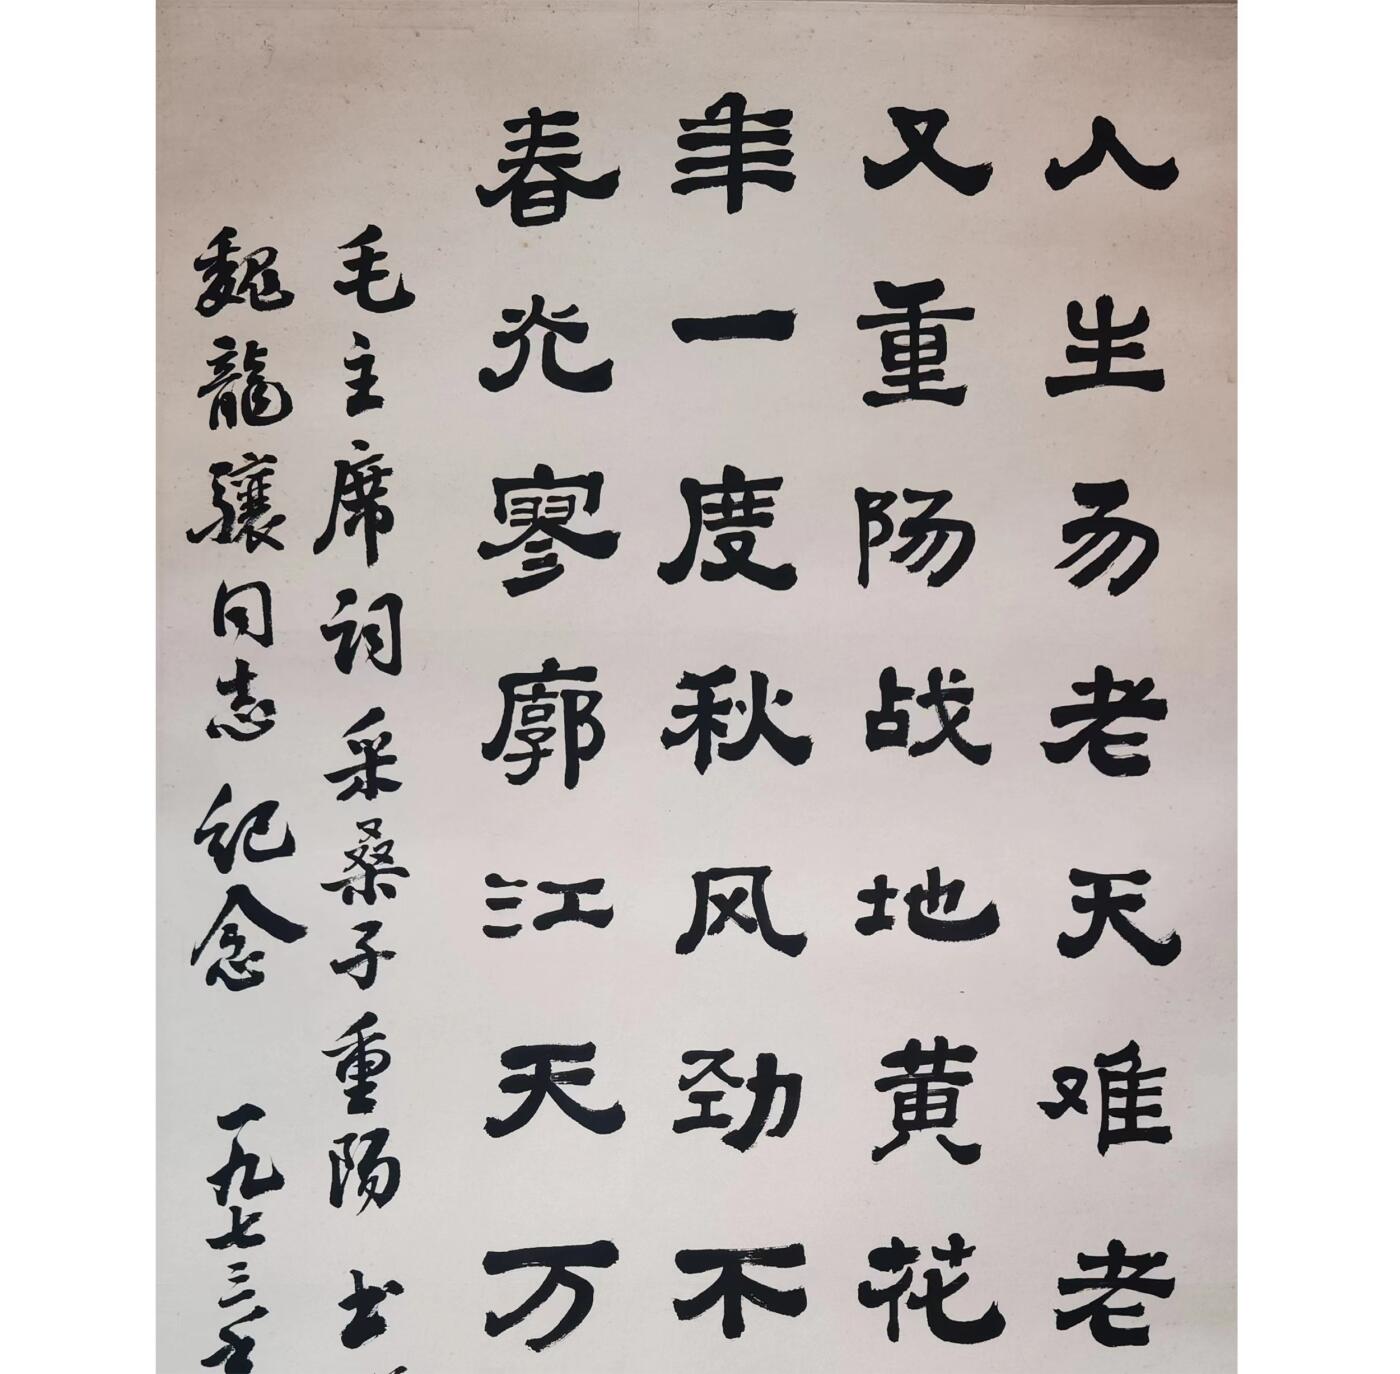 人生易老天难老
又重阳战地黄花
年一度秋风劲不
春光寥廓江天万
毛主席词采桑子重阳书
魏龍骧同志纪念 一九七三年